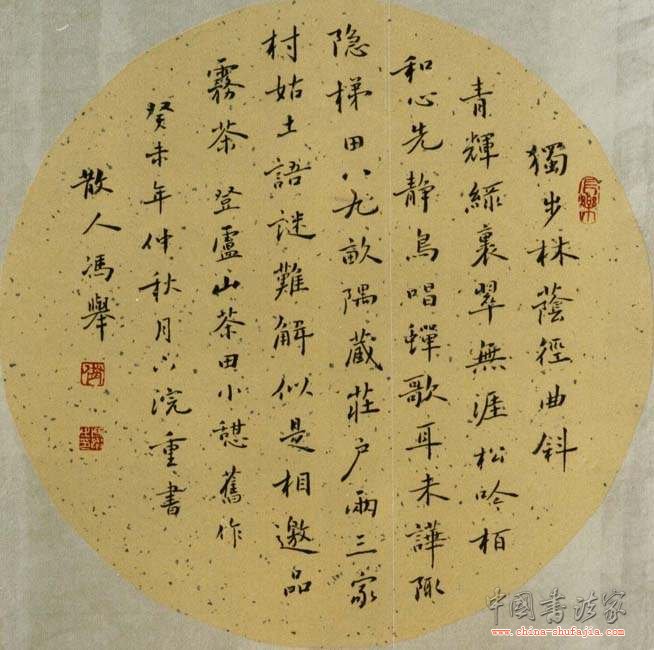 獨步株蔭徑曲斜
青輝綠裏翠無涯松吟柏
和心先靜鳥唱蟬歌耳未譁陬
隐梯田八九畝隅藏莊户兩三家
村姑土語謎難解似是相邀品
霧茶 登廬山茶田小憩舊作
癸未年仲秋月下浣重書
散人馮舉
中国书法家
www.china-shufajia.com